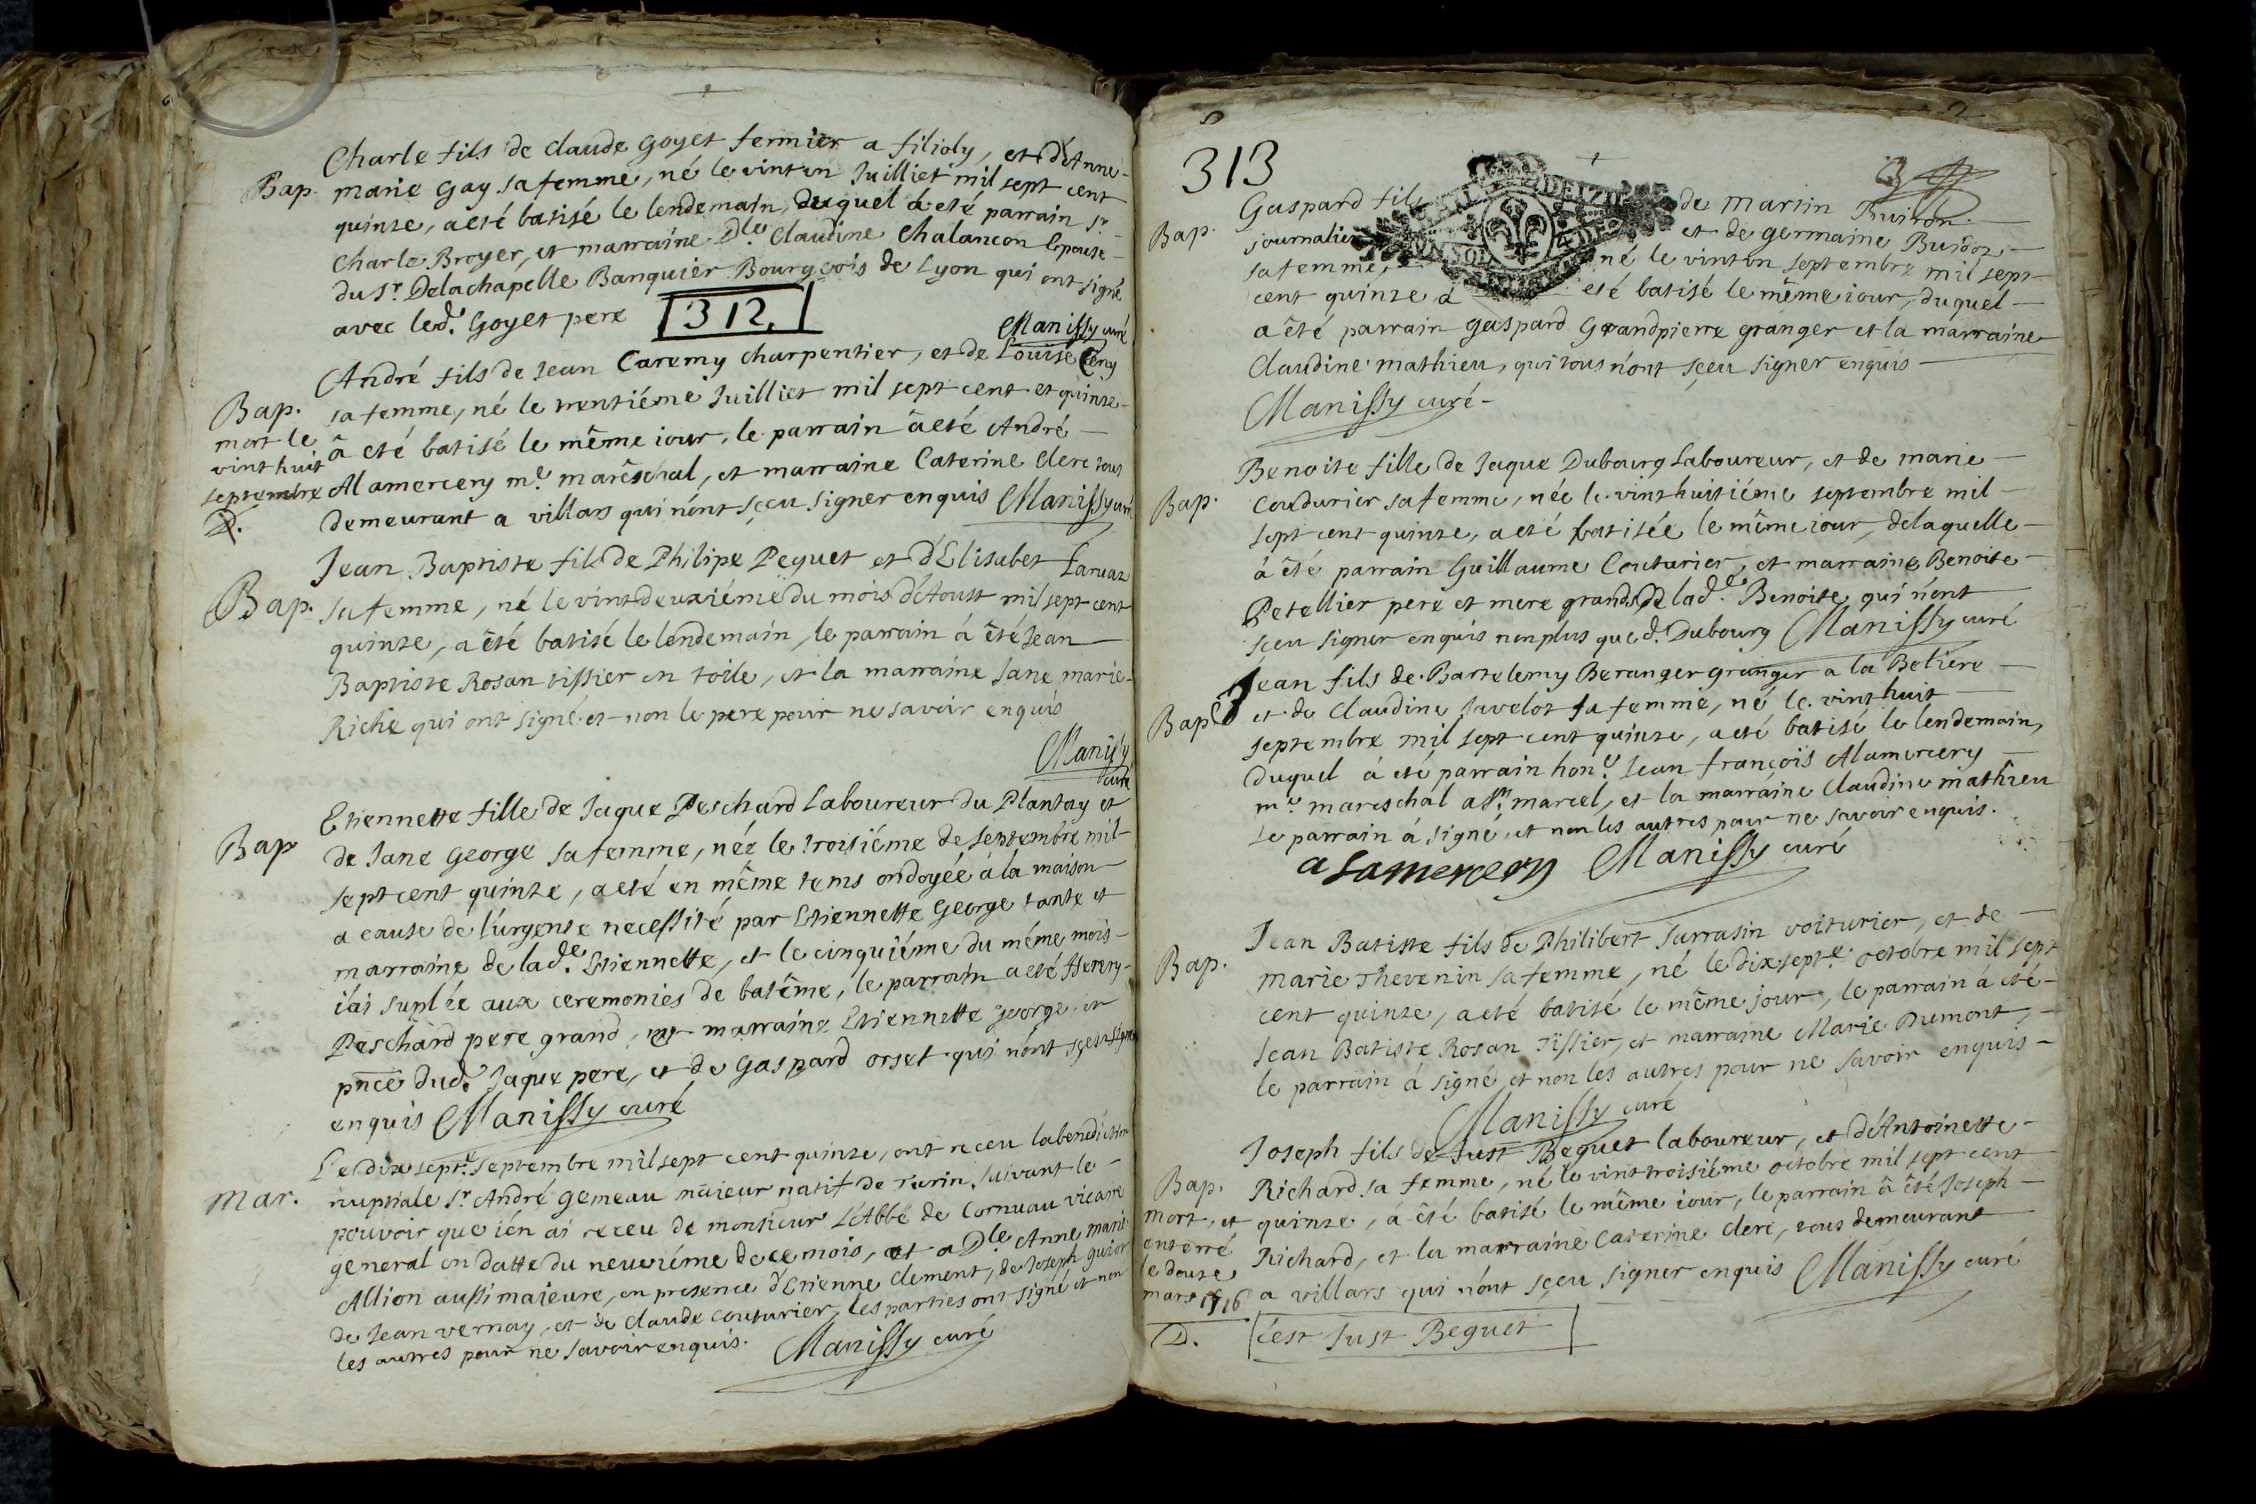 Charle fils de claude Goyet fermier a filioly, et d'Anne
Bap. marie Gay sa femme, né le vint un Juilliet mil sept cent
quinze, a eté batisé le lendemain, duquel à eté parrain Sr.
Charle Broyer, et marraine Dle. Claudine Chalancon Epouse
du Sr. Delachapelle Banquier Bourgeois de Lyon qui ont signé
avec led. Goyet pere
312.
Manissy curé
André fils de Jean Caremy charpentier, et de Louise
Bap. sa femme, né le trentiéme Juilliet mil sept cent et quinze
mort le
vint huit
septembre
D.
â eté batisé le même iour, le parrain à eté André
Alamercery me. marêschal, et marraine Caterine Clerc tous
demeurant a villars qui n'ont sçeu signer enquis Manissy curé
Jean Baptiste fils de Philipe Peguet et d'Elisabet
Bap. sa femme, né le vint deuxiéme du mois d'Aoust mil sept cent
quinze, a êté batisé le lendemain, le parrain à êté Jean
Baptiste Rosan tissier en toile, et la marraine Jane marie
Riche qui ont signé et non le pere pour ne savoir enquis
Manissy
curé
Etiennette fille de Jaque Peschard Laboureur du Plantay et
Bap de Jane George sa femme, née le troisiéme de septembre mil
sept cent quinze, a eté en même tems ondoyée à la maison
a cause de l'urgente necessité par Etiennette George tante et
marraine de lade. Etiennette, et le cinquiéme du méme mois
i'ai suplée aux ceremonies de batême, le parrain a eté Henry
Peschard pere grand, et marraine Etiennette George, en
pnce dud. Jaque pere, et de Gaspard orset qui n'ont sçeu signer
enquis Manissy curé
Le dix sept.e septembre mil sept cent quinze, ont receu la benediction
Mar. nuptiale Sr. André Gemeau maieur natif de Turin, suivant le
pouvoir que i'en ai receu de monsieur L'Abbé de Cornuau vicaire
general en datte du neuviéme de ce mois, et a Dle. Anne marie
Allion aussi maieure, en presence d'Etienne Clement, de Joseph
de Jean vernay, et de Claude Couturier, les parties ont signé et non
les autres pour ne savoir enquis. Manissy curé
313
Gaspard fils de Martin
Bap. journalier et de germaine
sa femme, né le vint un septembre mil sept
cent quinze à eté batisé le même iour, duquel
a êté parrain gaspard Grandpierre granger et la marraine
Claudine mathieu, qui tous n'ont sçeu signer enquis
Manissy curé
Benoite fille de Jaque Dubourg Laboureur, et de marie
Bap. Coudurier sa femme, née le vint huitiéme septembre mil
sept cent quinze, a eté batisée le même iour, de laquelle
à êté parrain Guillaume Couturier, et marraine Benoite
Petellier pere et mere grands de lade. Benoite qui n'ont
sçeu signer enquis non plus que d. Dubourg Manissy curé
Jean fils de Bartelemy Beranger granger a la Betiere
Bap et de Claudine Javelot sa femme, né le vint huit
septembre mil sept cent quinze, a eté batisé le lendemain,
duquel à eté parrain hone. Jean françois Alamercery
me. mareschal a St. marcel, et la marraine Claudine mathieu
le parrain à signé, et non les autres pour ne savoir enquis.
alamercery Manissy curé
Jean Batiste fils de Philibert Sarrasin voiturier, et de
Bap. marie Thevenin sa femme, né le dix sept.e octobre mil sept
cent quinze, a eté batisé le même jour, le parrain à eté
Jean Batiste Rosan Tissier, et marraine Marie Dumont,
le parrain à signé et non les autres pour ne savoir enquis
Manissy curé
Joseph fils de Just Beguet laboureur, et d'Antoinette
Bap. Richard sa femme, né le vint troisiéme octobre mil sept cent
mort, et
enterré
le douze
mars 1716
D.
quinze, à êté batisé le même iour, le parrain â êté Joseph
Richard, et la marraine Caterine Clerc, tous demeurant
a villars qui n'ont sçeu signer enquis Manissy curé
c'est Just Beguet